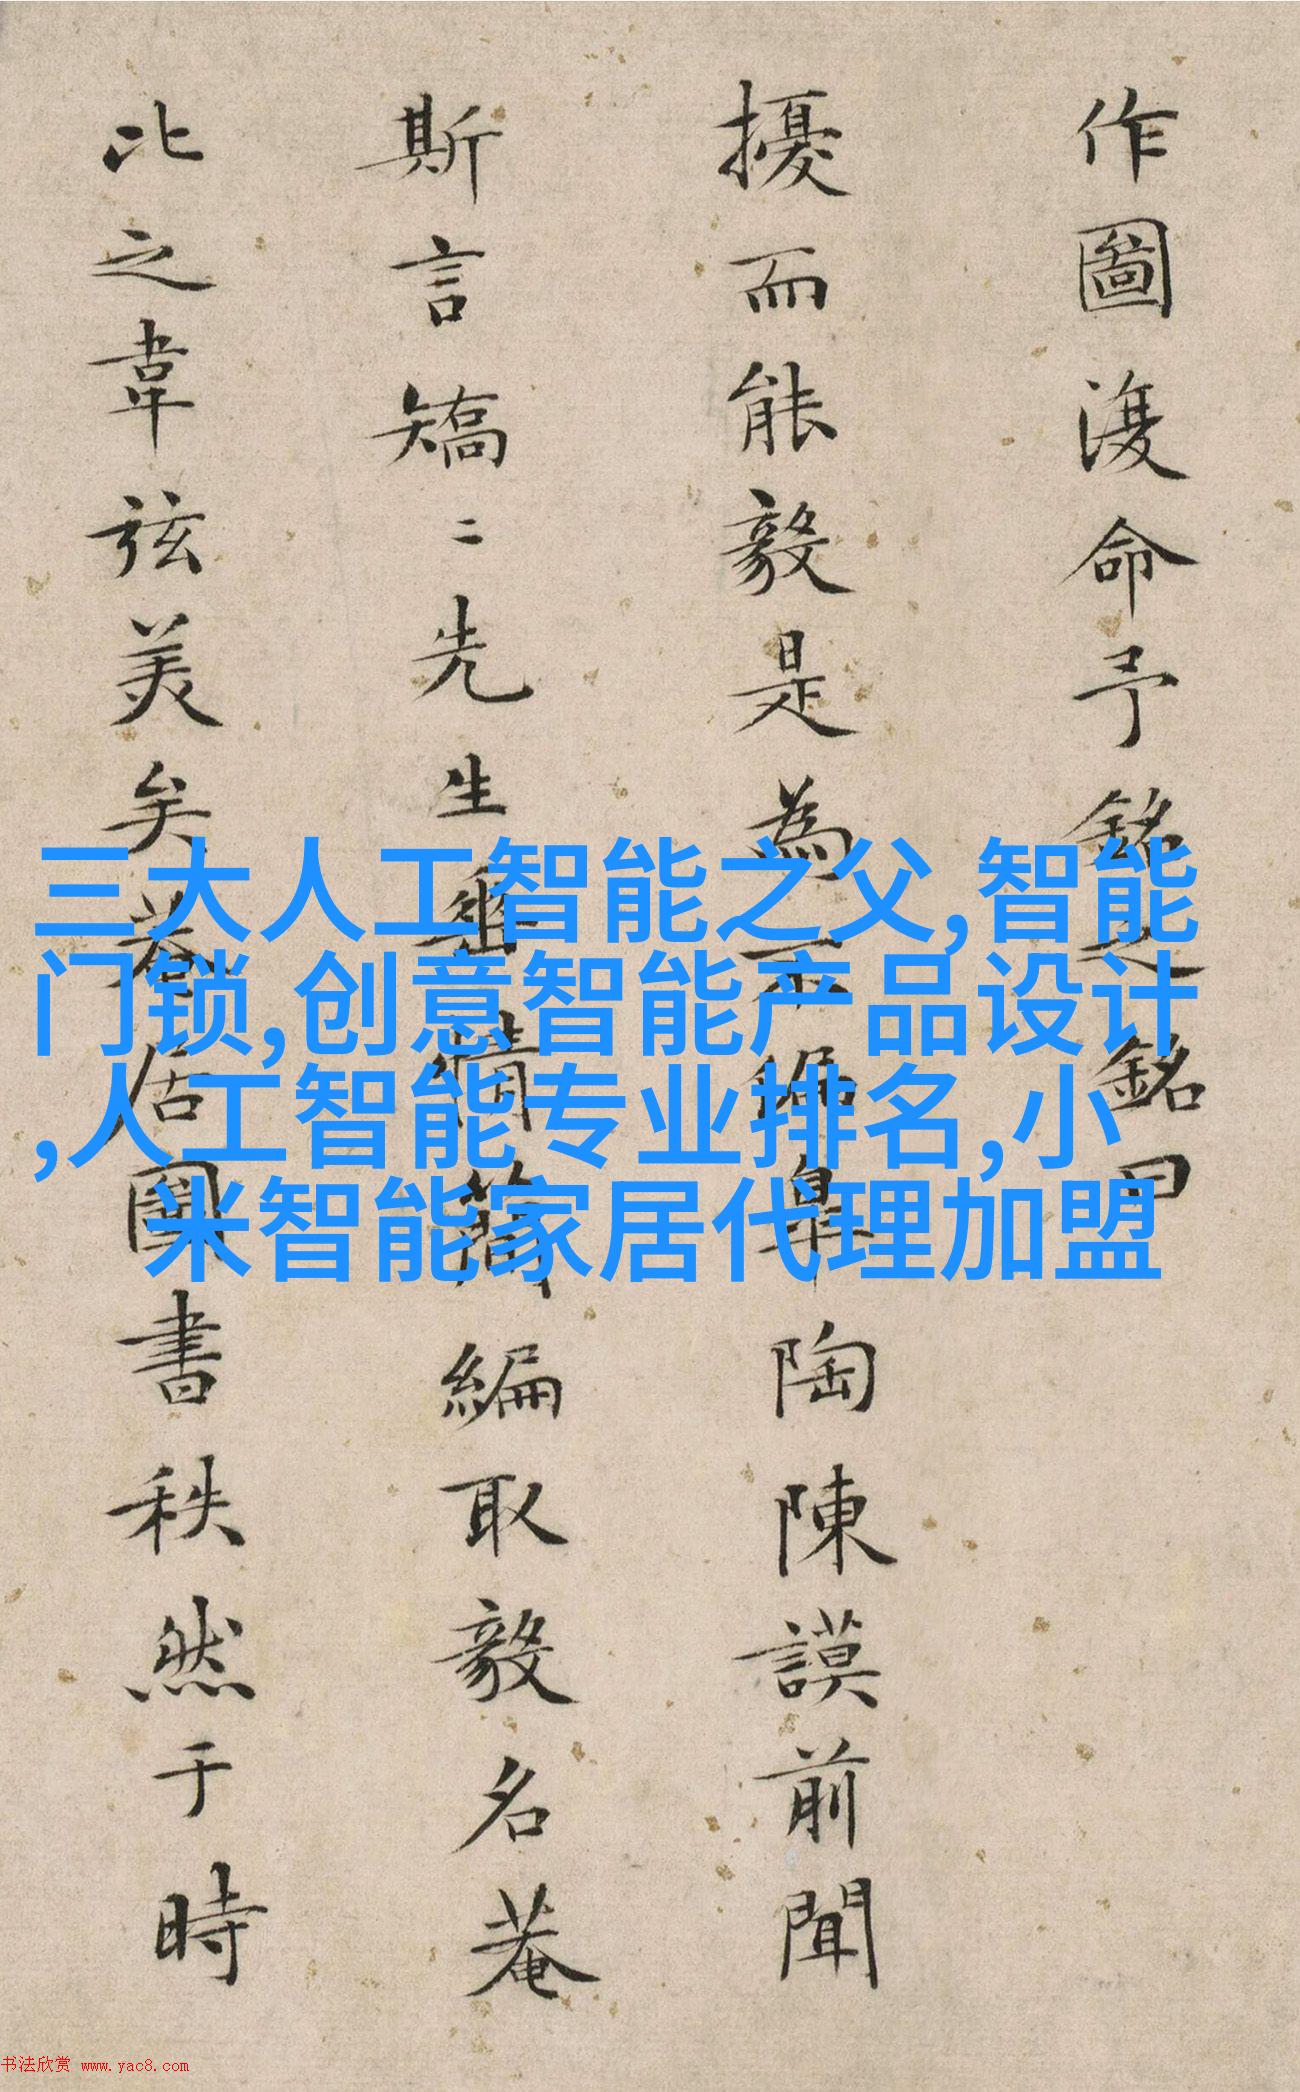 作圖復命予銘之銘曰
擾而能毅是為不偏皋陶陳謨前聞
斯言矯二先生垂情簡編取毅名菴
比之韋弦美矣菴居圖書秩然于時
三大人工智能之父,智能
门锁,创意智能产品设计
,人工智能专业排名,小
米智能家居代理加盟
书法欣赏 www.yac8.com